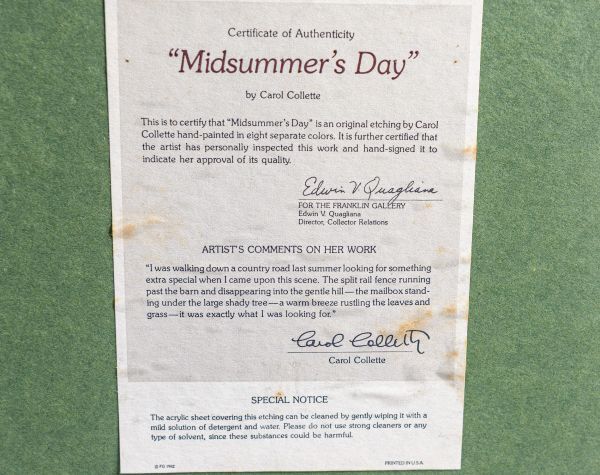 Certificate of Authenticity
“Midsummer’s Day”
by Carol Collette
This is to certify that “Midsummer’s Day” is an original etching by Carol
Collette hand-painted in eight separate colors. It is further certified that
the artist has personally inspected this work and hand-signed it to
indicate her approval of its quality.
Edwin V Quagliana
FOR THE FRANKLIN GALLERY
Edwin V. Quagliana
Director, Collector Relations
ARTIST’S COMMENTS ON HER WORK
“I was walking down a country road last summer looking for something
extra special when I came upon this scene. The split rail fence running
past the barn and disappearing into the gentle hill—the mailbox stand-
ing under the large shady tree—a warm breeze rustling the leaves and
grass—it was exactly what I was looking for.”
Carol Collette
Carol Collette
SPECIAL NOTICE
The acrylic sheet covering this etching can be cleaned by gently wiping it with a
mild solution of detergent and water. Please do not use strong cleaners or any
type of solvent, since these substances could be harmful.
© FG 1982 PRINTED IN U.S.A.